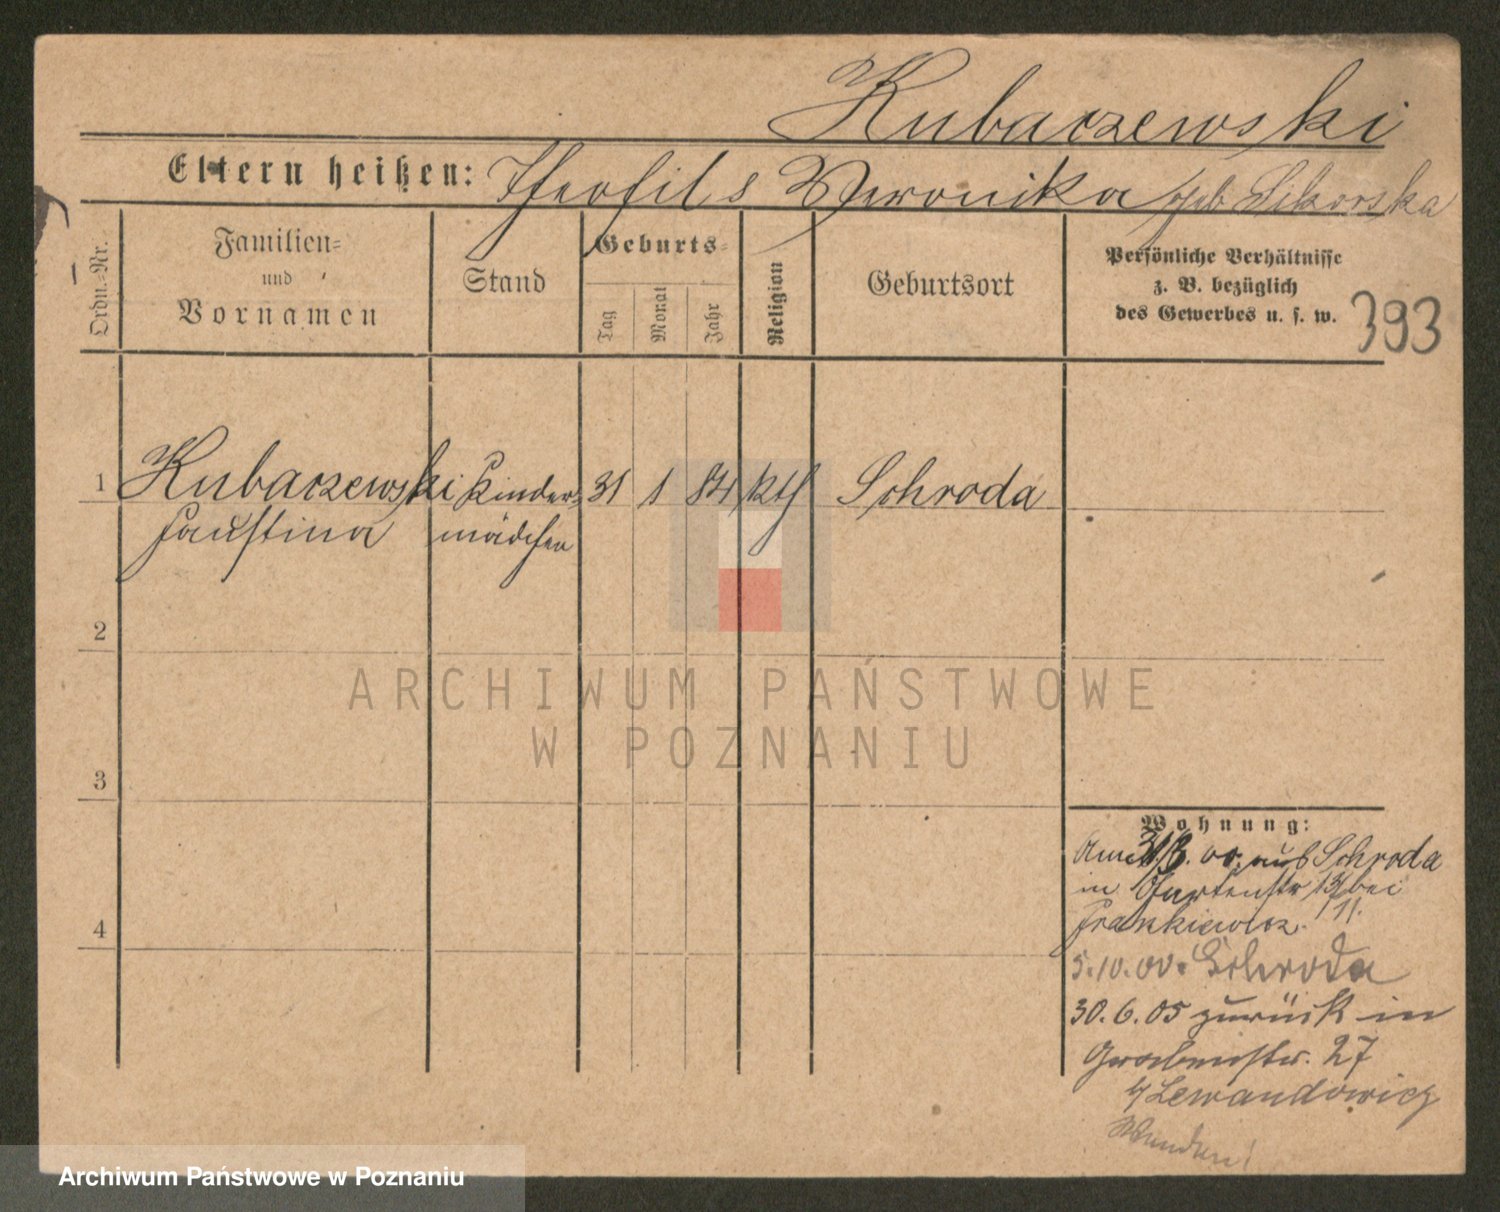 Kubaczewski
Eltern heißen: Theofil & Weronika geb Sikorska
Ordn.-Nr.
Familien-
und
Vornamen
Stand
Geburts-
Tag
Monat
Jahr
Religion
Geburtsort
Persönliche Verhältnisse
z. B. bezüglich
des Gewerbes u. s. w.
393
1 Kubaczewski Kinder- 31 1 84 kth Schroda
Faustina mädchen
2
ARCHIWUM PAŃSTWOWE
W POZNANIU
3
4
Wohnung:
Am 00. aus Schroda
in Gartenstr 13 bei
Frankiewicz.
5.10.00. Schroda
30.6.05 zurück in
Grabenstr. 27
b/ Lewandowicz
Wenden!
Archiwum Państwowe w Poznaniu